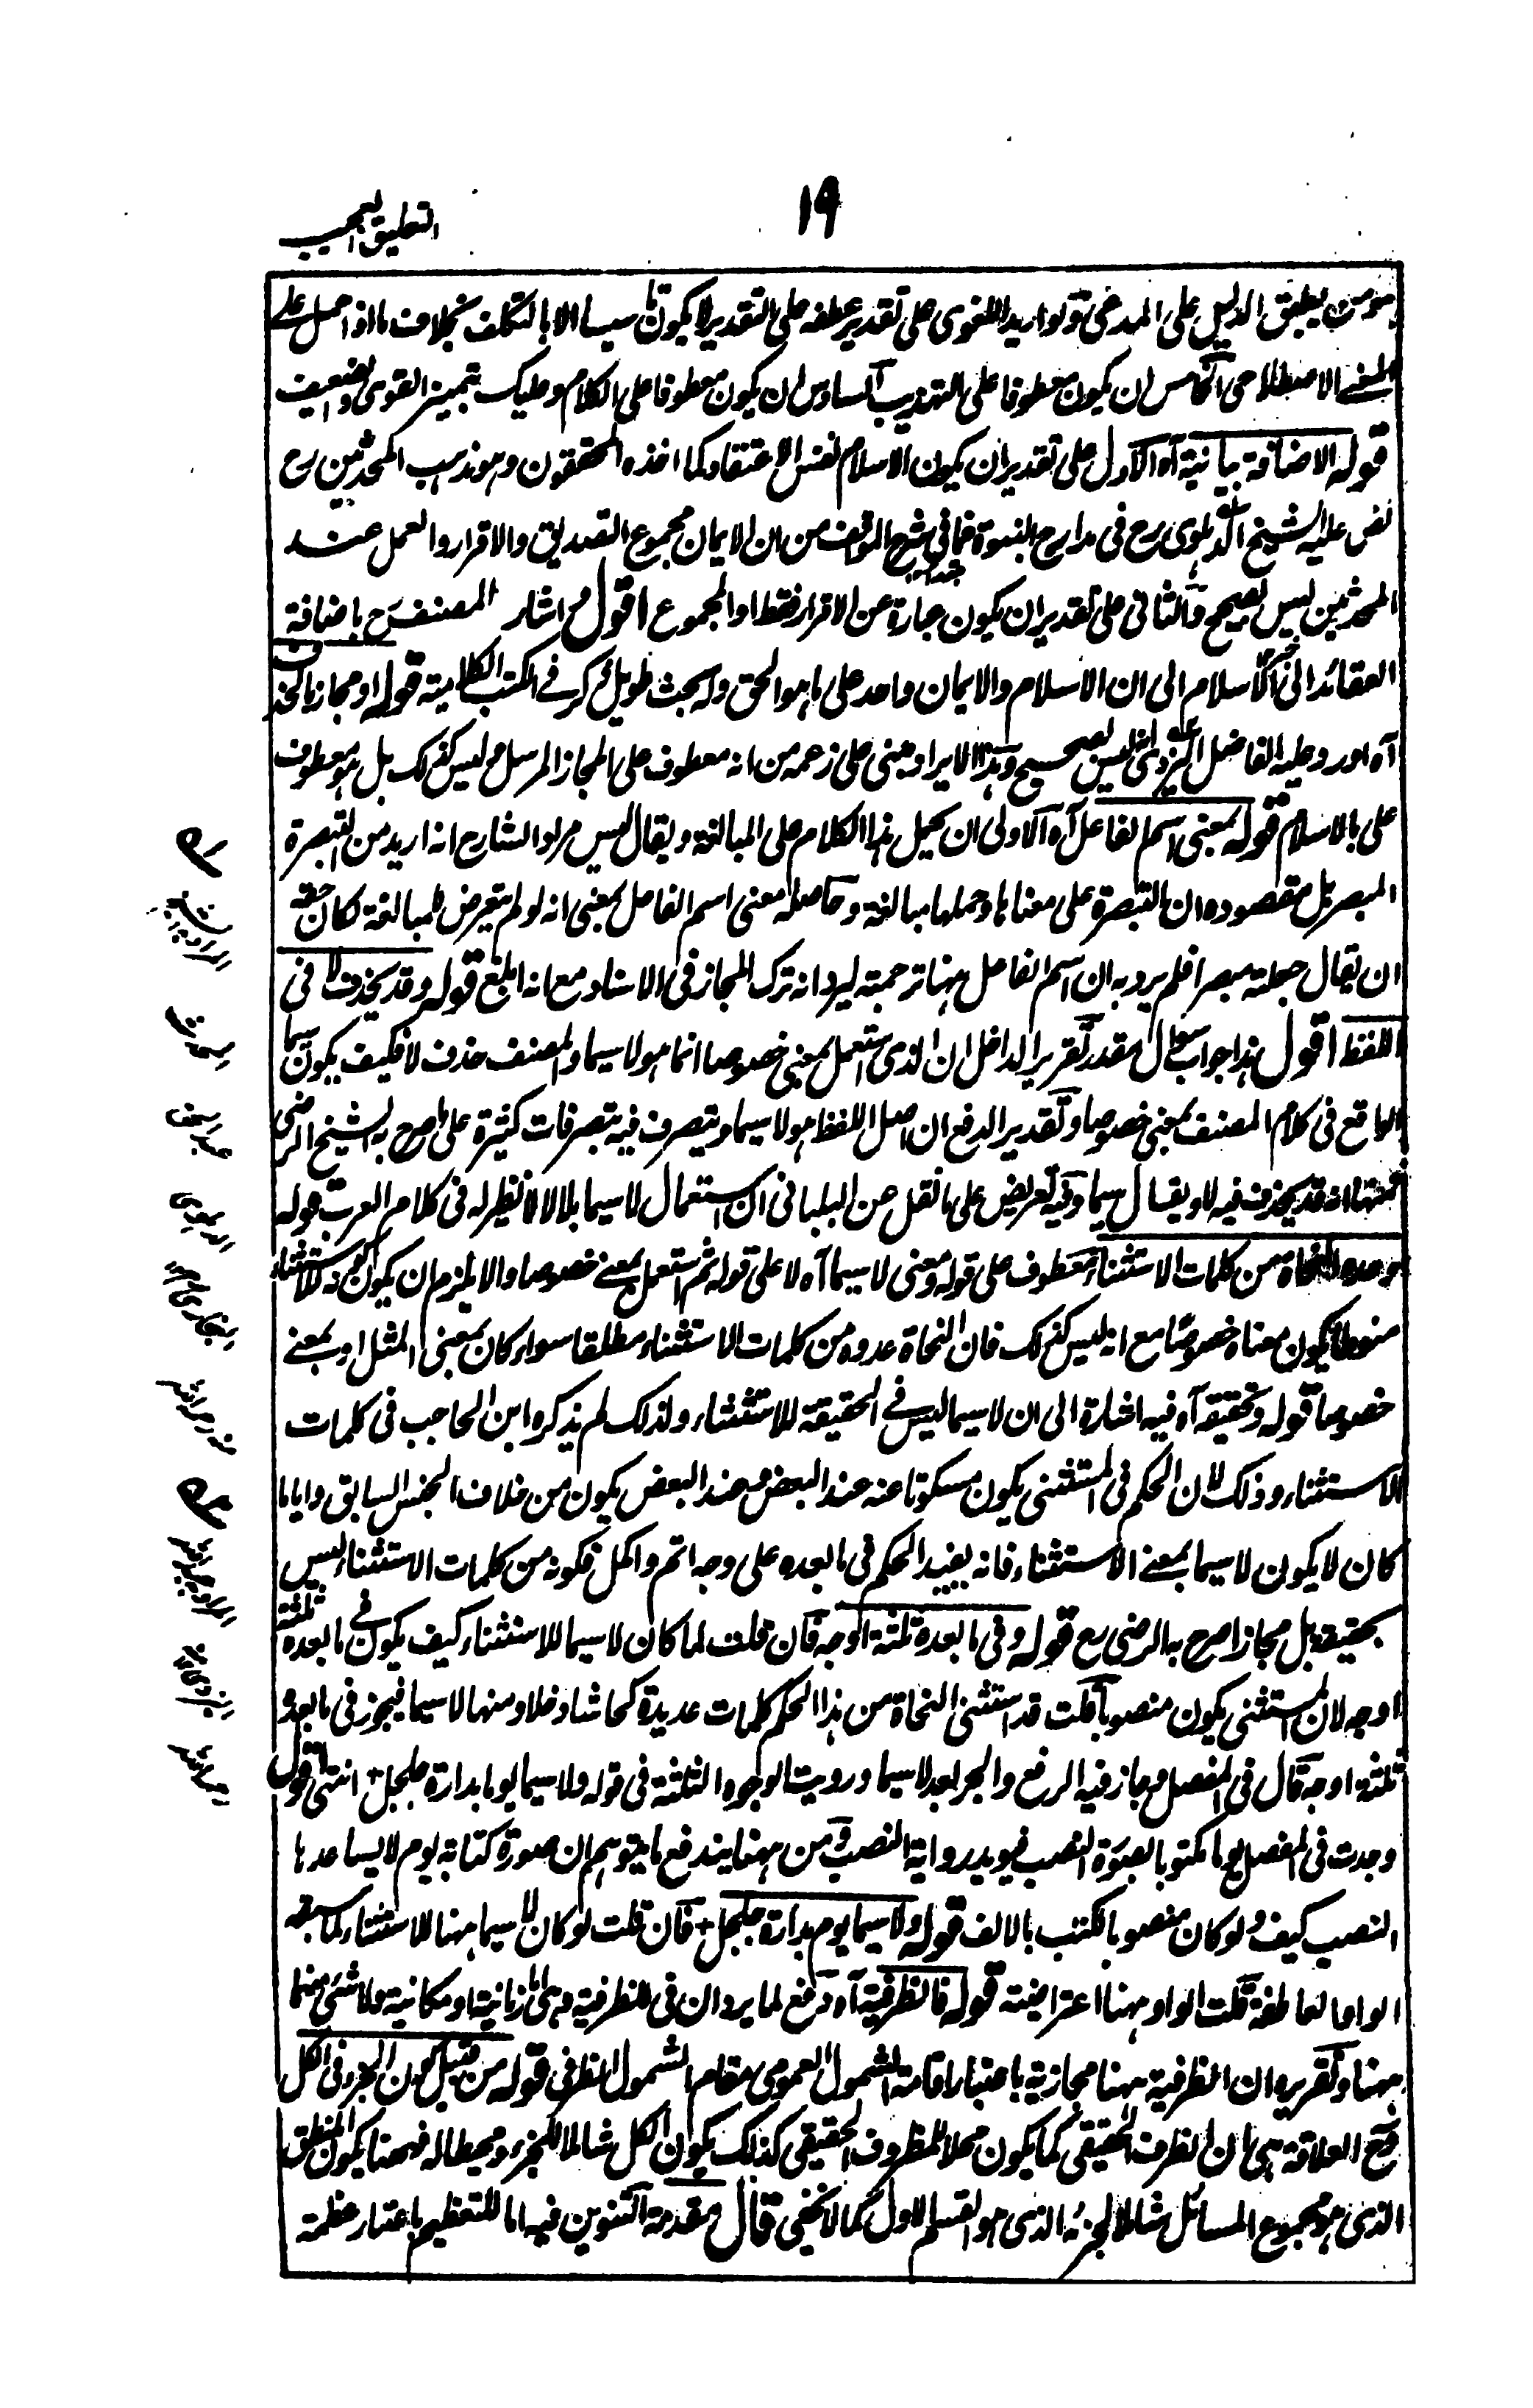 ١٩
التعليق العجيب
يطبق الدليل على المدعى ولو اريد اللغوى على تقدير عطفه على التقدير لا يكون تاسيسا الا بالتكلف بخلاف ما اذا حمل على
المعنى الاصطلاحى الخامس ان يكون معطوفا على التهذيب السادس ان يكون معطوفا على الكلام وعليك بتمييز القوى والضعيف
قوله الاضافة بيانية آه الاول على تقدير ان يكون الاسلام نفس الاعتقاد كما اخذه المحققون وهو مذهب المحدثين رح
نص عليه الشيخ الدهلوى رح فى مدارج النبوة فما فى شرح المواقف من ان الايمان مجموع التصديق والاقرار والعمل عند
المحدثين ليس بصحيح والثانى على تقدير ان يكون عبارة عن الاقرار فقط او المجموع اقول اشار المصنف رح باضافة
العقائد الى الاسلام الى ان الاسلام والايمان واحد على ما هو الحق وله بحث طويل ذكر فى الكتب الكلامية قوله او مجاز بالحذف
آه اورد عليه الفاضل اليزدى ليس بصحيح وهذا الايراد مبنى على زعمه من انه معطوف على المجاز المرسل وليس كذلك بل هو معطوف
على بالاسلام قوله بمعنى اسم الفاعل آه الاولى ان يحمل هذا الكلام على المبالغة ويقال ليس مراد الشارح انه اريد من التبصرة
المبصر بل مقصوده ان التبصرة على معناها وحملها مبالغة وحاصله معنى اسم الفاعل بمعنى انه لو لم يتعرض للمبالغة لكان حقه
ان يقال جعلته مبصرا فلم يرد به ان اسم الفاعل ههنا ترجمته ليرد انه ترك المجاز فى الاسناد مع انه ابلغ قوله وقد يحذف لا فى
اللفظ اقول هذا جواب سوال مقدر تقرير الدخل ان الذى استعمل بمعنى خصوصا انما هو لا سيما والمصنف حذف لا فكيف يكون سيما
الواقع فى كلام المصنف بمعنى خصوصا وتقدير الدفع ان اصل اللفظ هو لا سيما ويتصرف فيه تصرفات كثيرة على ما صرح به الشيخ الرضى
فمنها انه قد يحذف فيه لا ويقال سيما وفيه تعريض على ما نقل عن البلبانى ان استعمال لا سيما بلا لا لا نظير له فى كلام العرب قوله
وعده النحاة من كلمات الاستثناء معطوف على قوله ومعنى لا سيما آه لا على قوله ثم استعمل بمعنى خصوصا والا يلزم ان يكون كونه للاستثناء
منوطا بكون معناه خصوصا مع انه ليس كذلك فان النحاة عدوه من كلمات الاستثناء مطلقا سواء كان بمعنى المثل او بمعنى
خصوصا قوله وتحقيقه آه فيه اشارة الى ان لا سيما ليس فى الحقيقة للاستثناء ولذلك لم يذكره ابن الحاجب فى كلمات
الاستثناء وذلك لان الحكم فى المستثنى يكون مسكوتا عنه عند البعض وعند البعض يكون من خلاف الجنس السابق واياما
كان لا يكون لا سيما بمعنى الاستثناء فانه يفيد الحكم فى ما بعده على وجه اتم واكمل فكونه من كلمات الاستثناء ليس
بحقيقة بل مجازا صرح به الرضى رح قوله وفى ما بعده ثلثة اوجه فان قلت لما كان لا سيما للاستثناء كيف يكون فى ما بعده ثلثة
اوجه لان المستثنى يكون منصوبا قلت قد استثنى النحاة من هذا الحكم كلمات عديدة كحاشا وخلا ومنها لا سيما فيجوز فى ما بعده
ثلثة اوجه قال فى المفصل وجاز فيه الرفع والجر بعد لا سيما ورويت الوجوه الثلثة فى قوله ولا سيما يوما بدارة جلجل انتهى اقول
وجدت فى المفصل يوما مكتوبا بصورة النصب فيويد رواية النصب ومن ههنا يندفع ما يتوهم ان صورة كتابة يوم لا يساعدها
النصب كيف ولو كان منصوبا لكتب بالالف قوله ولا سيما يوم بدارة جلجل فان قلت لو كان لا سيما ههنا للاستثناء لما سبقه
الواو العاطفة قلت الواو ههنا اعتراضية قوله فالظرفية آه دفع لما يرد ان فى للظرفية وهى اما زمانية او مكانية ولا شئ منهما
ههنا وتقريره ان الظرفية ههنا مجازية باعتبار اقامة الشمول العمومى مقام الشمول الظرفى قوله من قبيل كون الجزء فى الكل
العلاقة هى ان الظرف الحقيقى كما يكون محلا للمظروف الحقيقى كذلك يكون الكل شاملا للجزء ومحيطا له فههنا يكون المنطق
الذى هو مجموع المسائل شاملا لجزئه الذى هو القسم الاول كما لا يخفى قال مقدمة التنوين فيه اما للتعظيم باعتبار عظمة